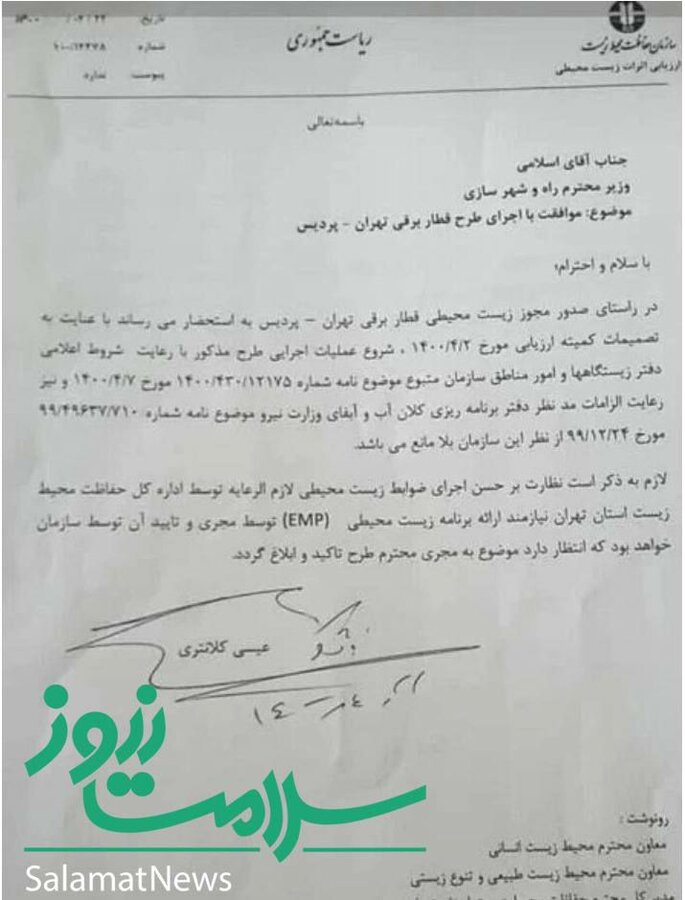 ریاست جمهوری
سازمان حفاظت محیط زیست
ارزیابی اثرات زیست محیطی
تاریخ
شماره
پیوست ندارد
باسمه‌تعالی
جناب آقای اسلامی
وزیر محترم راه و شهر سازی
موضوع: موافقت با اجرای طرح قطار برقی تهران – پردیس
با سلام و احترام؛
در راستای صدور مجوز زیست محیطی قطار برقی تهران – پردیس به استحضار می رساند با عنایت به
تصمیمات کمیته ارزیابی مورخ ۱۴۰۰/۴/۲ ، شروع عملیات اجرایی طرح مذکور با رعایت شروط اعلامی
دفتر زیستگاهها و امور مناطق سازمان متبوع موضوع نامه شماره ۱۴۰۰/۴۳۰/۱۲۱۷۵ مورخ ۱۴۰۰/۴/۷ و نیز
رعایت الزامات مد نظر دفتر برنامه ریزی کلان آب و آبفای وزارت نیرو موضوع نامه شماره ۹۹/۴۹۶۳۷/۷۱۰
مورخ ۹۹/۱۲/۲۴ از نظر این سازمان بلا مانع می باشد.
لازم به ذکر است نظارت بر حسن اجرای ضوابط زیست محیطی لازم الرعایه توسط اداره کل حفاظت محیط
زیست استان تهران نیازمند ارائه برنامه زیست محیطی (EMP) توسط مجری و تایید آن توسط سازمان
خواهد بود که انتظار دارد موضوع به مجری محترم طرح تاکید و ابلاغ گردد.
عیسی کلانتری
رونوشت :
معاون محترم محیط زیست انسانی
معاون محترم محیط زیست طبیعی و تنوع زیستی
سلامت نیوز
SalamatNews